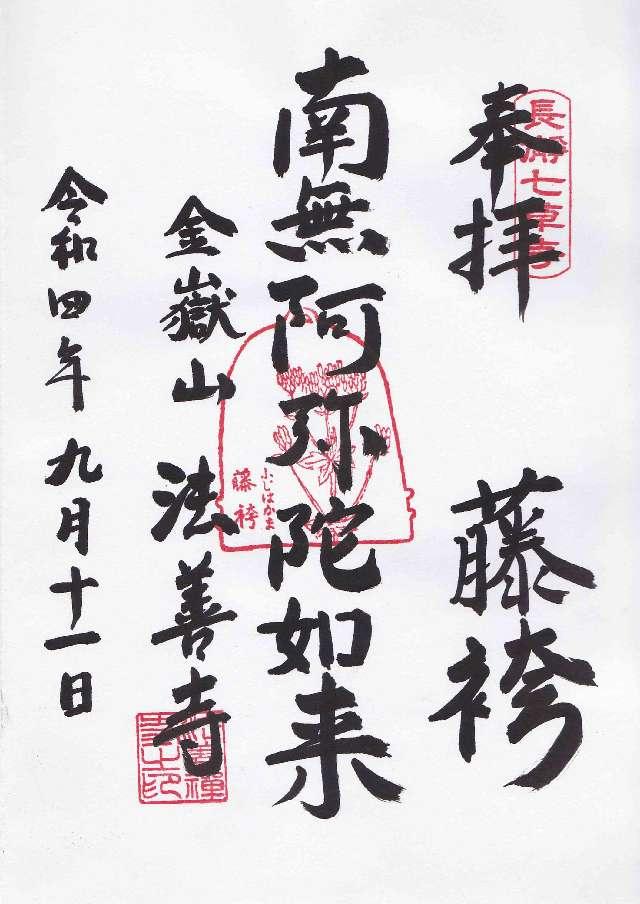 奉拝
長瀞七草寺
藤袴
南無阿弥陀如来
ふじはかま
藤袴
金嶽山 法善寺
令和四年九月十一日